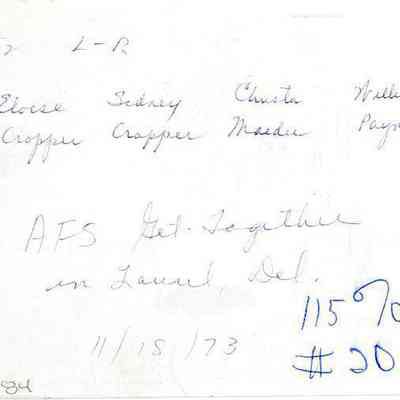 L-R
Eloise Sidney Christa Willi
Cropper Cropper Maeder Payn
AFS Get-Together
in Laurel, Del.
11/18/73
115%
#20